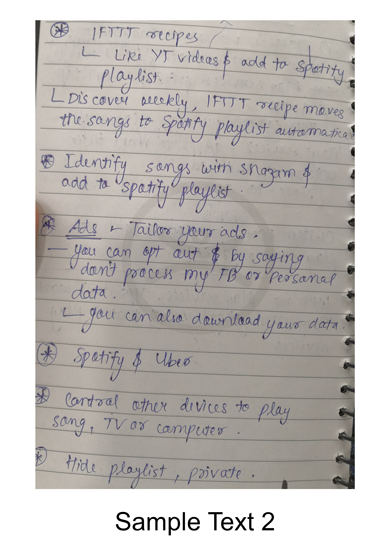 ⊛ IFTTT recipes
∟ Like YT videos & add to Spotify
playlist.
∟ Discover weekly, IFTTT recipe moves
the songs to Spotify playlist automatica
⊛ Identify songs with shazam &
add to spotify playlist.
⊛ Ads - Tailor your ads.
- you can opt out & by saying
don't process my FB or personal
data.
∟ you can also download your data.
⊛ Spotify & Uber
⊛ Control other devices to play
song, TV or computer.
⊛ Hide playlist, private.
Sample Text 2